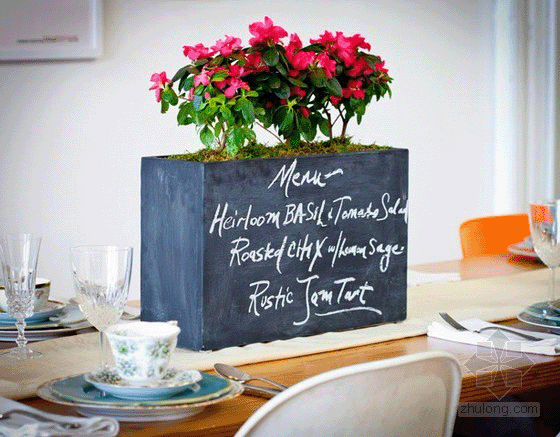 Menu
Heirloom BASIL & Tomato Salad
Roasted Chix w/ Lemon Sage
Rustic Jam Tart
zhulong.com